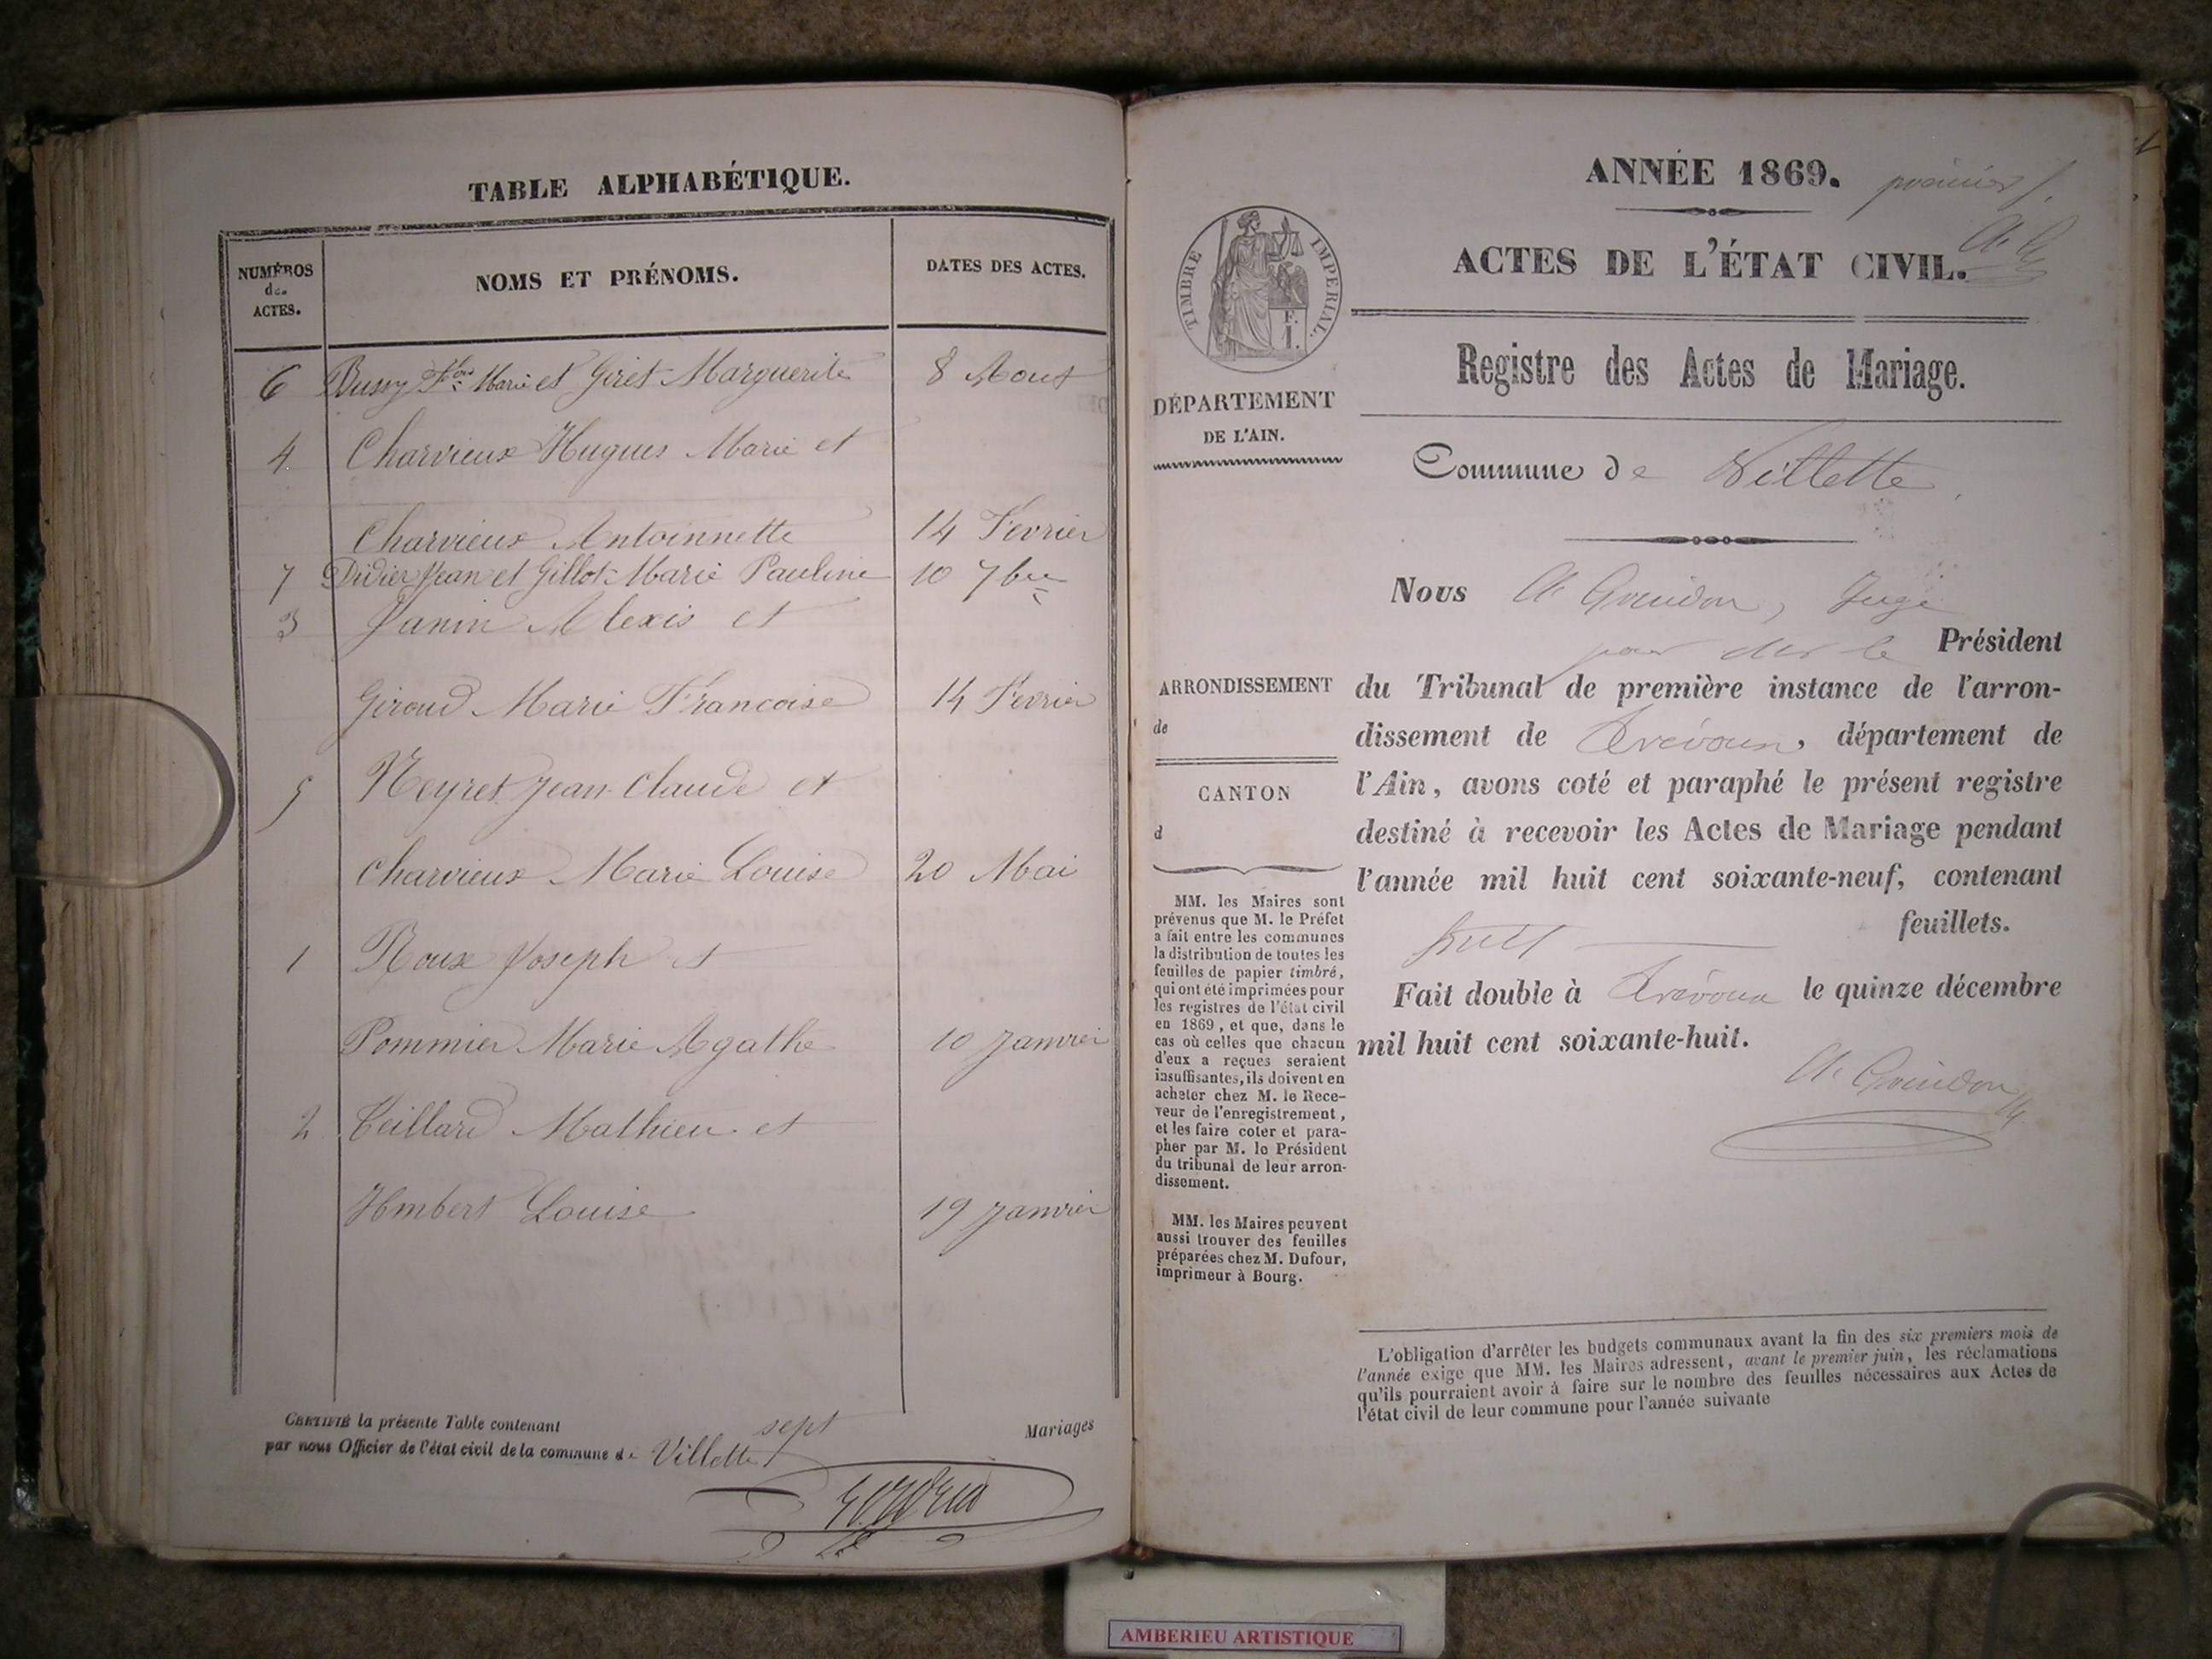 TABLE ALPHABÉTIQUE.
NUMÉROS
des
ACTES.
NOMS ET PRÉNOMS.
DATES DES ACTES.
6 Bussy Fçois Marie et Giret Marguerite 8 Aout
4 Charvieux Hugues Marie et
Charvieux Antoinnette 14 Fevrier
7 Didier Jean et Gillot Marie Pauline 10 7bre
3 Janin Alexis et
Giroud Marie Francoise 14 Fevrier
5 Neyret Jean Claude et
Charvieux Marie Louise 20 Mai
1 Roux Joseph et
Pommier Marie Agathe 10 Janvier
2 Teillard Mathieu et
Humbert Louise 19 Janvier
CERTIFIÉ la présente Table contenant sept Mariages
par nous Officier de l'état civil de la commune de Villette
ANNÉE 1869.
premier
ACTES DE L'ÉTAT CIVIL.
TIMBRE IMPERIAL.
F.
1.
Registre des Actes de Mariage.
DÉPARTEMENT
DE L'AIN.
Commune de Villette
Nous Juge
pour le Président
ARRONDISSEMENT
de
CANTON
d
du Tribunal de première instance de l'arron-
dissement de Trévoux, département de
l'Ain, avons coté et paraphé le présent registre
destiné à recevoir les Actes de Mariage pendant
l'année mil huit cent soixante-neuf, contenant
huit feuillets.
Fait double à Trévoux le quinze décembre
mil huit cent soixante-huit.
MM. les Maires sont
prévenus que M. le Préfet
a fait entre les communes
la distribution de toutes les
feuilles de papier timbré,
qui ont été imprimées pour
les registres de l'état civil
en 1869, et que, dans le
cas où celles que chacun
d'eux a reçues seraient
insuffisantes, ils doivent en
acheter chez M. le Rece-
veur de l'enregistrement,
et les faire coter et para-
pher par M. le Président
du tribunal de leur arron-
dissement.
MM. les Maires peuvent
aussi trouver des feuilles
préparées chez M. Dufour,
imprimeur à Bourg.
L'obligation d'arrêter les budgets communaux avant la fin des six premiers mois de
l'année exige que MM. les Maires adressent, avant le premier juin, les réclamations
qu'ils pourraient avoir à faire sur le nombre des feuilles nécessaires aux Actes de
l'état civil de leur commune pour l'année suivante
AMBERIEU ARTISTIQUE